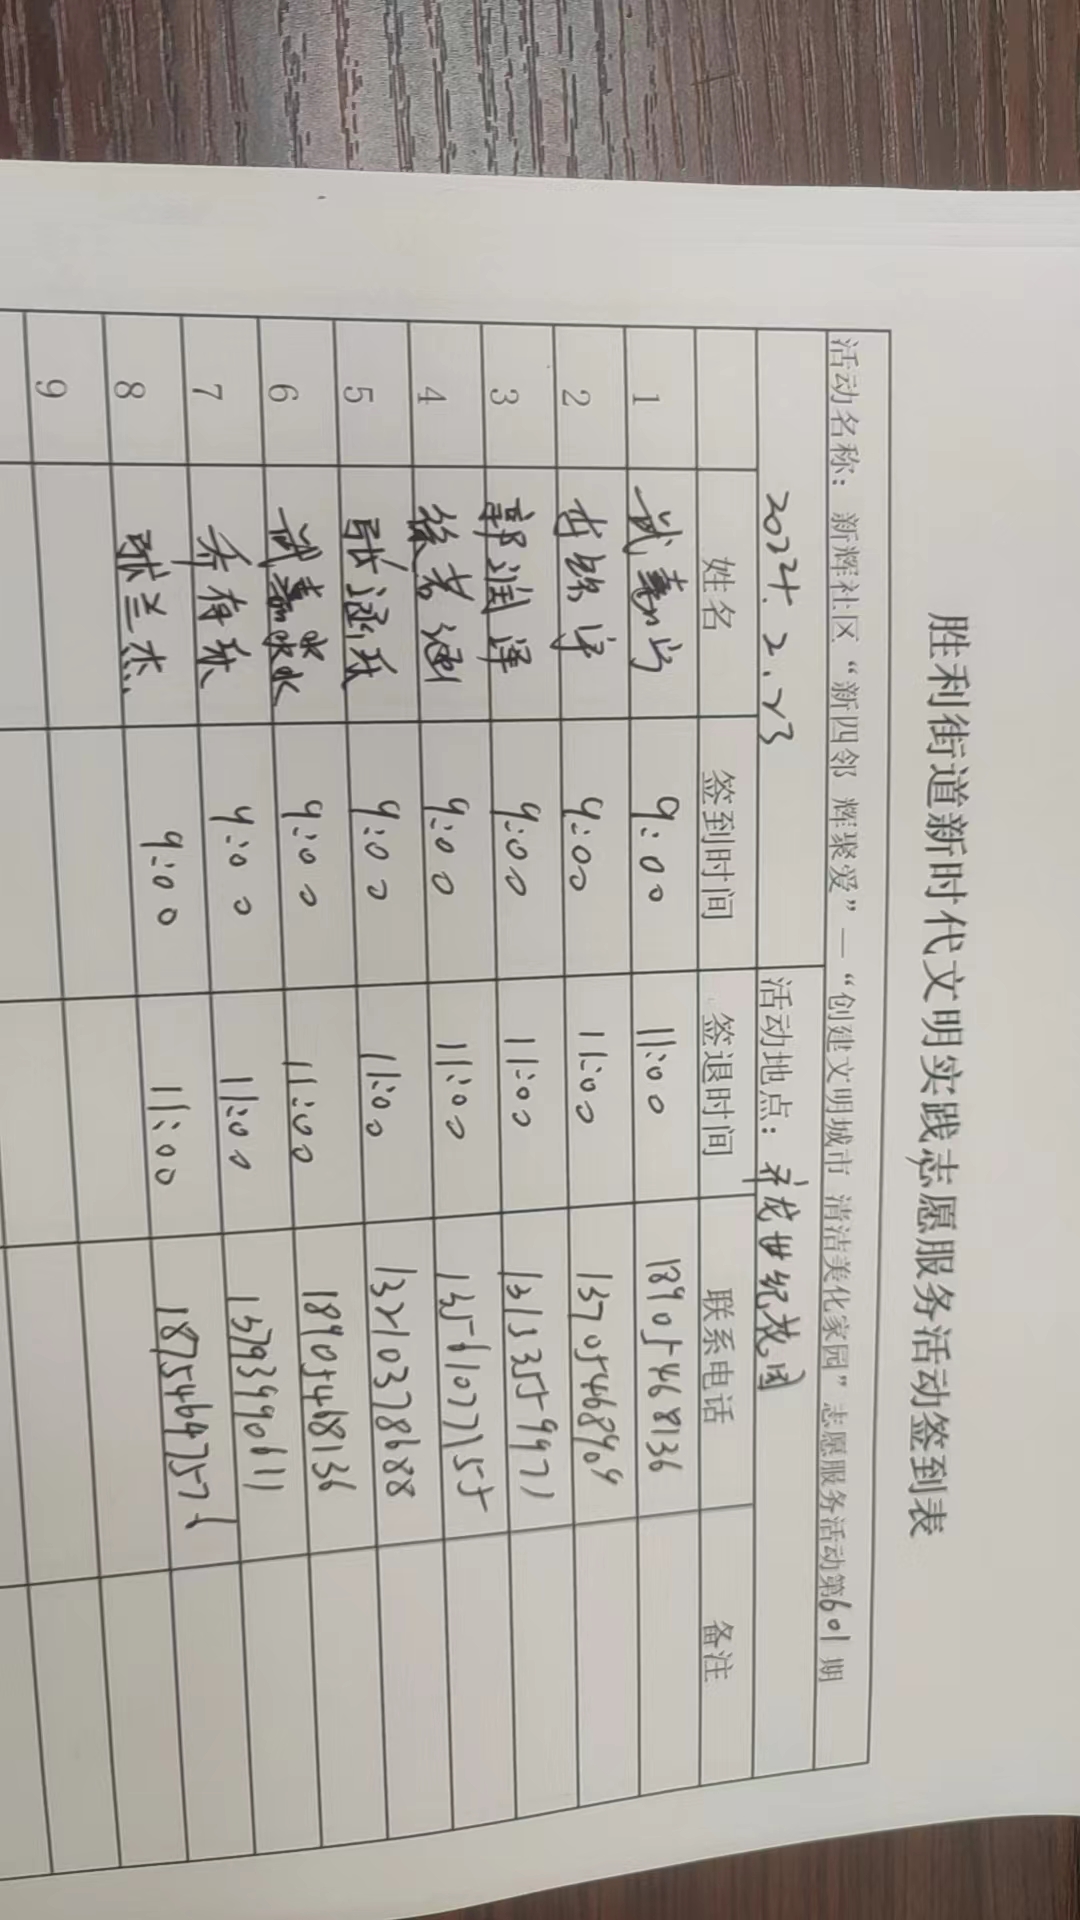 胜利街道新时代文明实践志愿服务活动签到表
活动名称：新辉社区“新四邻 辉聚爱”—“创建文明城市 清洁美化家园”志愿服务活动第601期
2024.2.23 活动地点：齐龙世纪花园
姓名 签到时间 签退时间 联系电话 备注
1 武嘉宁 9:00 11:00 18905468136
2 9:00 11:00 13705468909
3 郭润泽 9:00 11:00 13133559971
4 徐若涵 9:00 11:00 13561077155
5 张涵钰 9:00 11:00 13210378688
6 武嘉淼 9:00 11:00 18905468136
7 乔存珠 9:00 11:00 13793990611
8 张兰杰 9:00 11:00
9